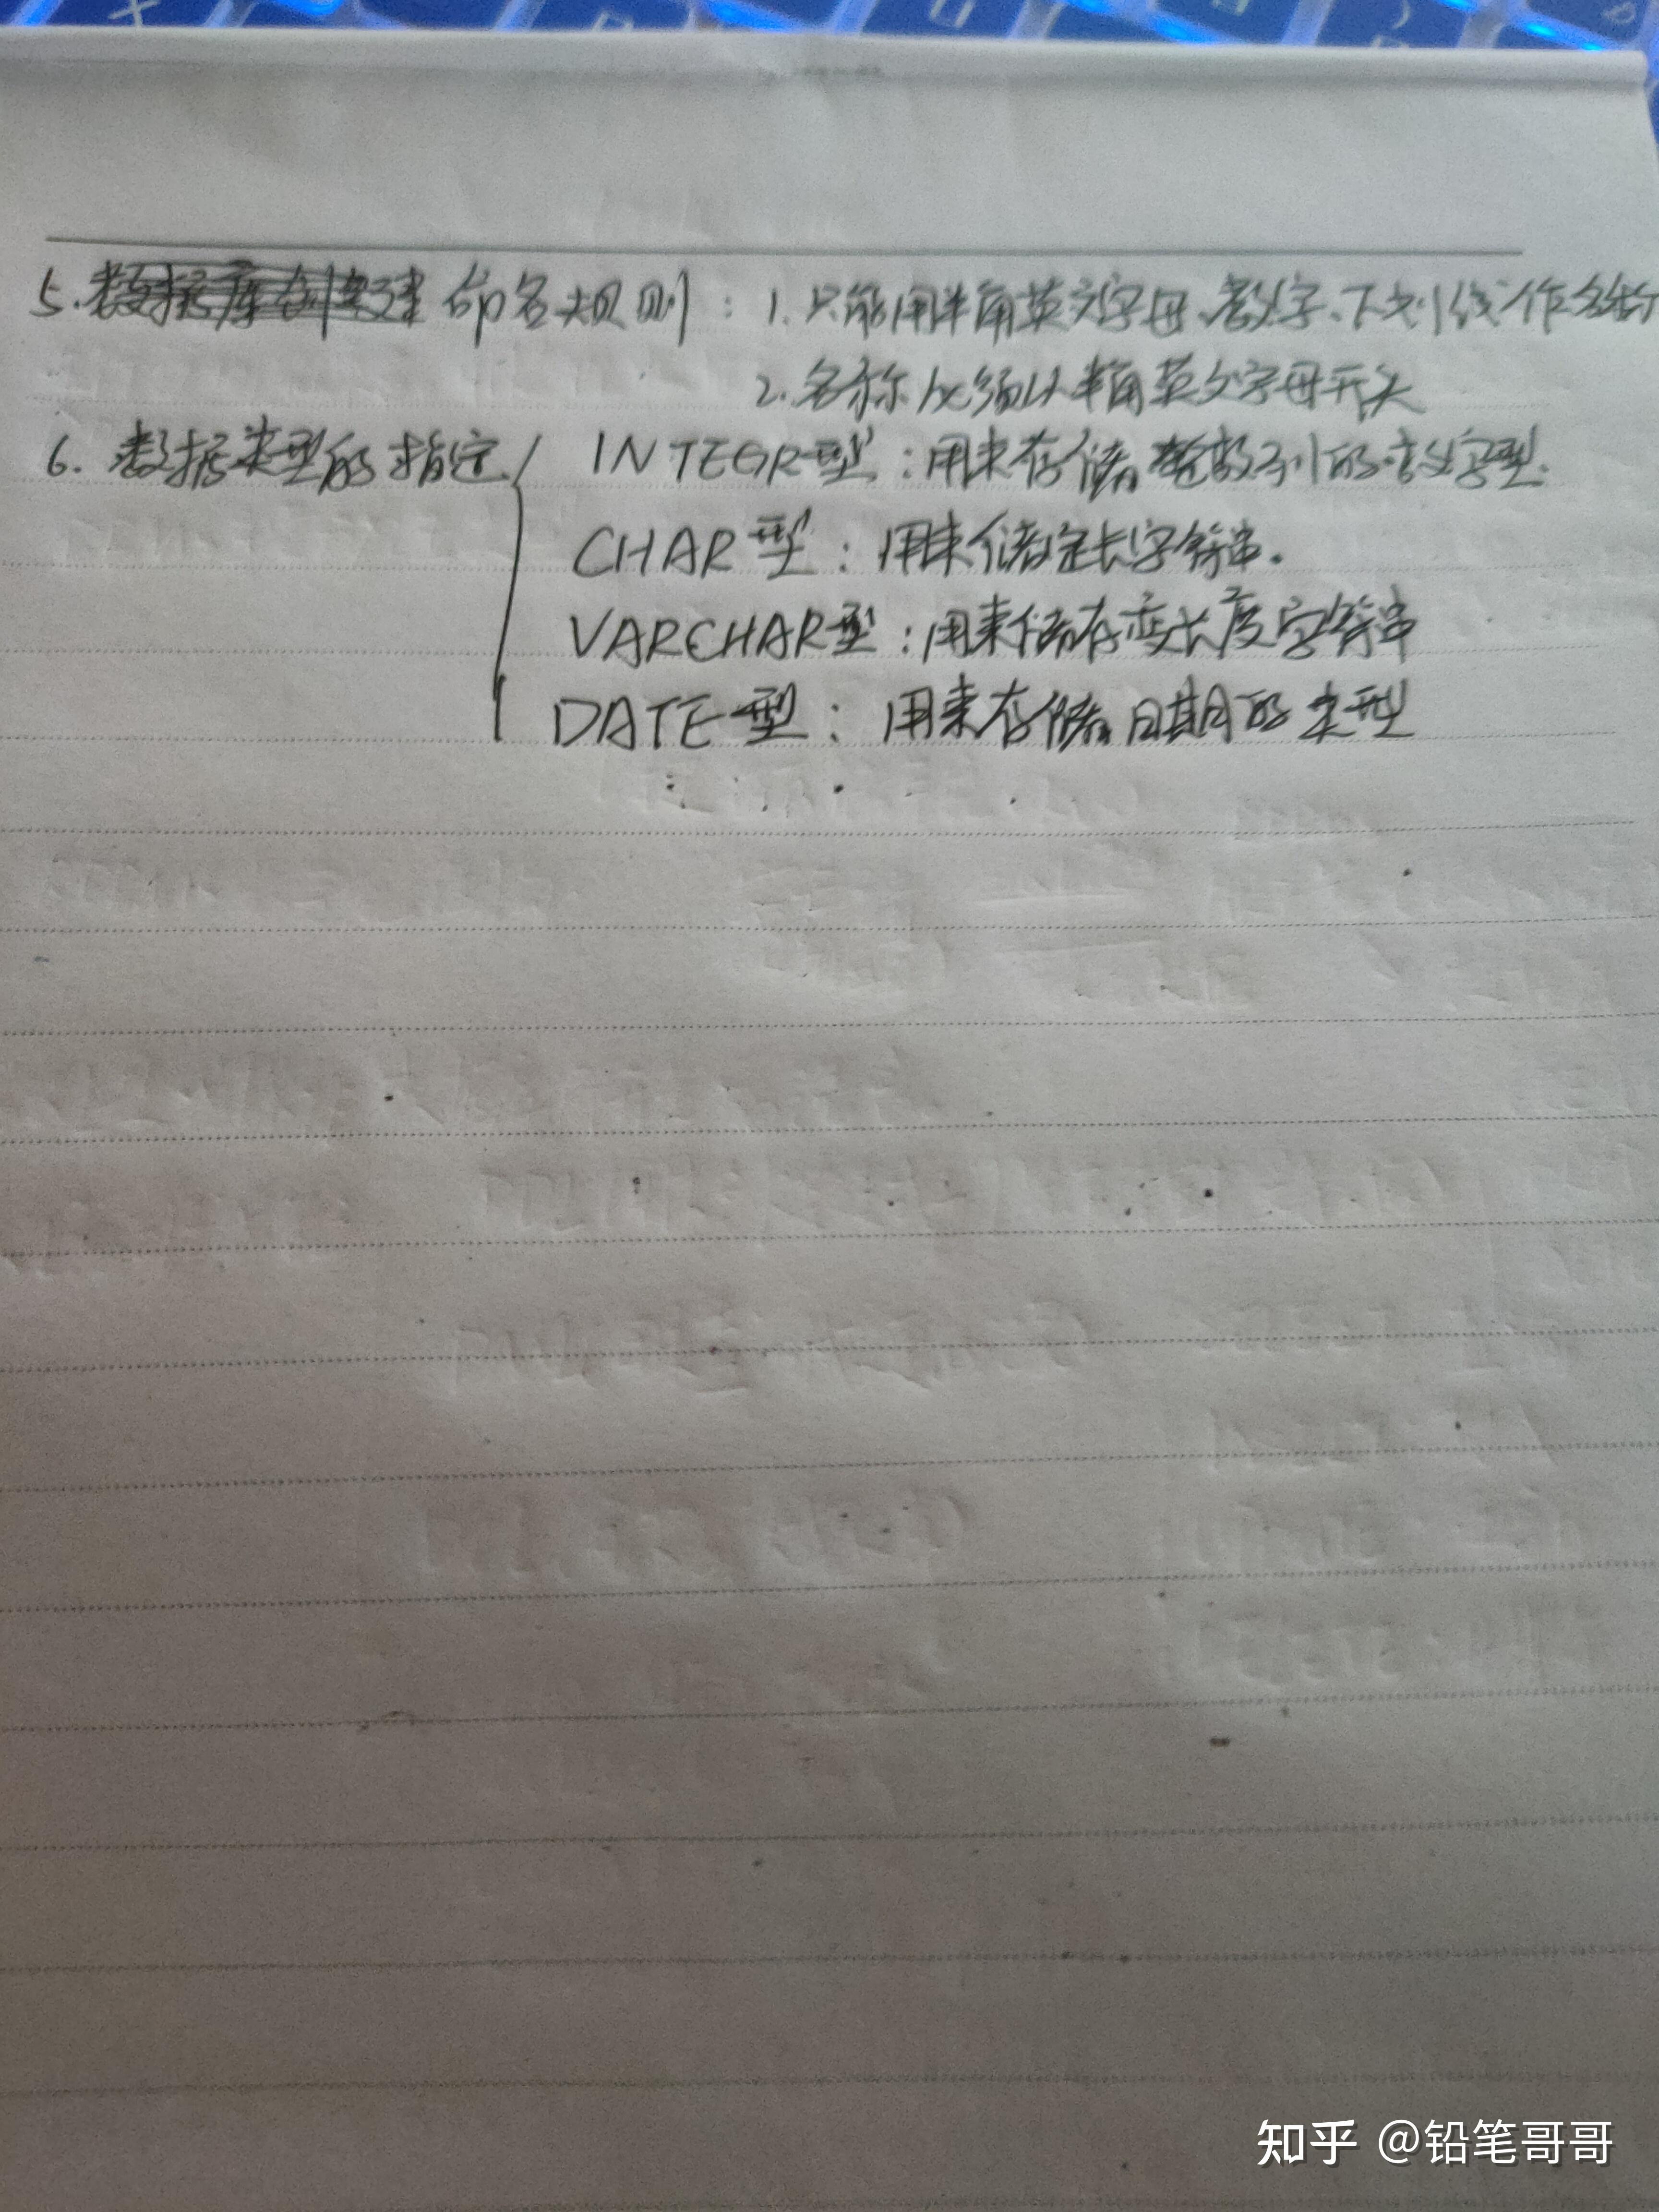 5. 命名规则：1. 只能用半角英文字母、数字、下划线作名称
2. 名称必须以半角英文字母开头
6. 数据类型的指定
INTEGR型：用来存储 数列的数字型.
CHAR型：用来储定长字符串.
VARCHAR型：用来储存变长度字符串
DATE型：用来存储日期的类型
知乎 @铅笔哥哥